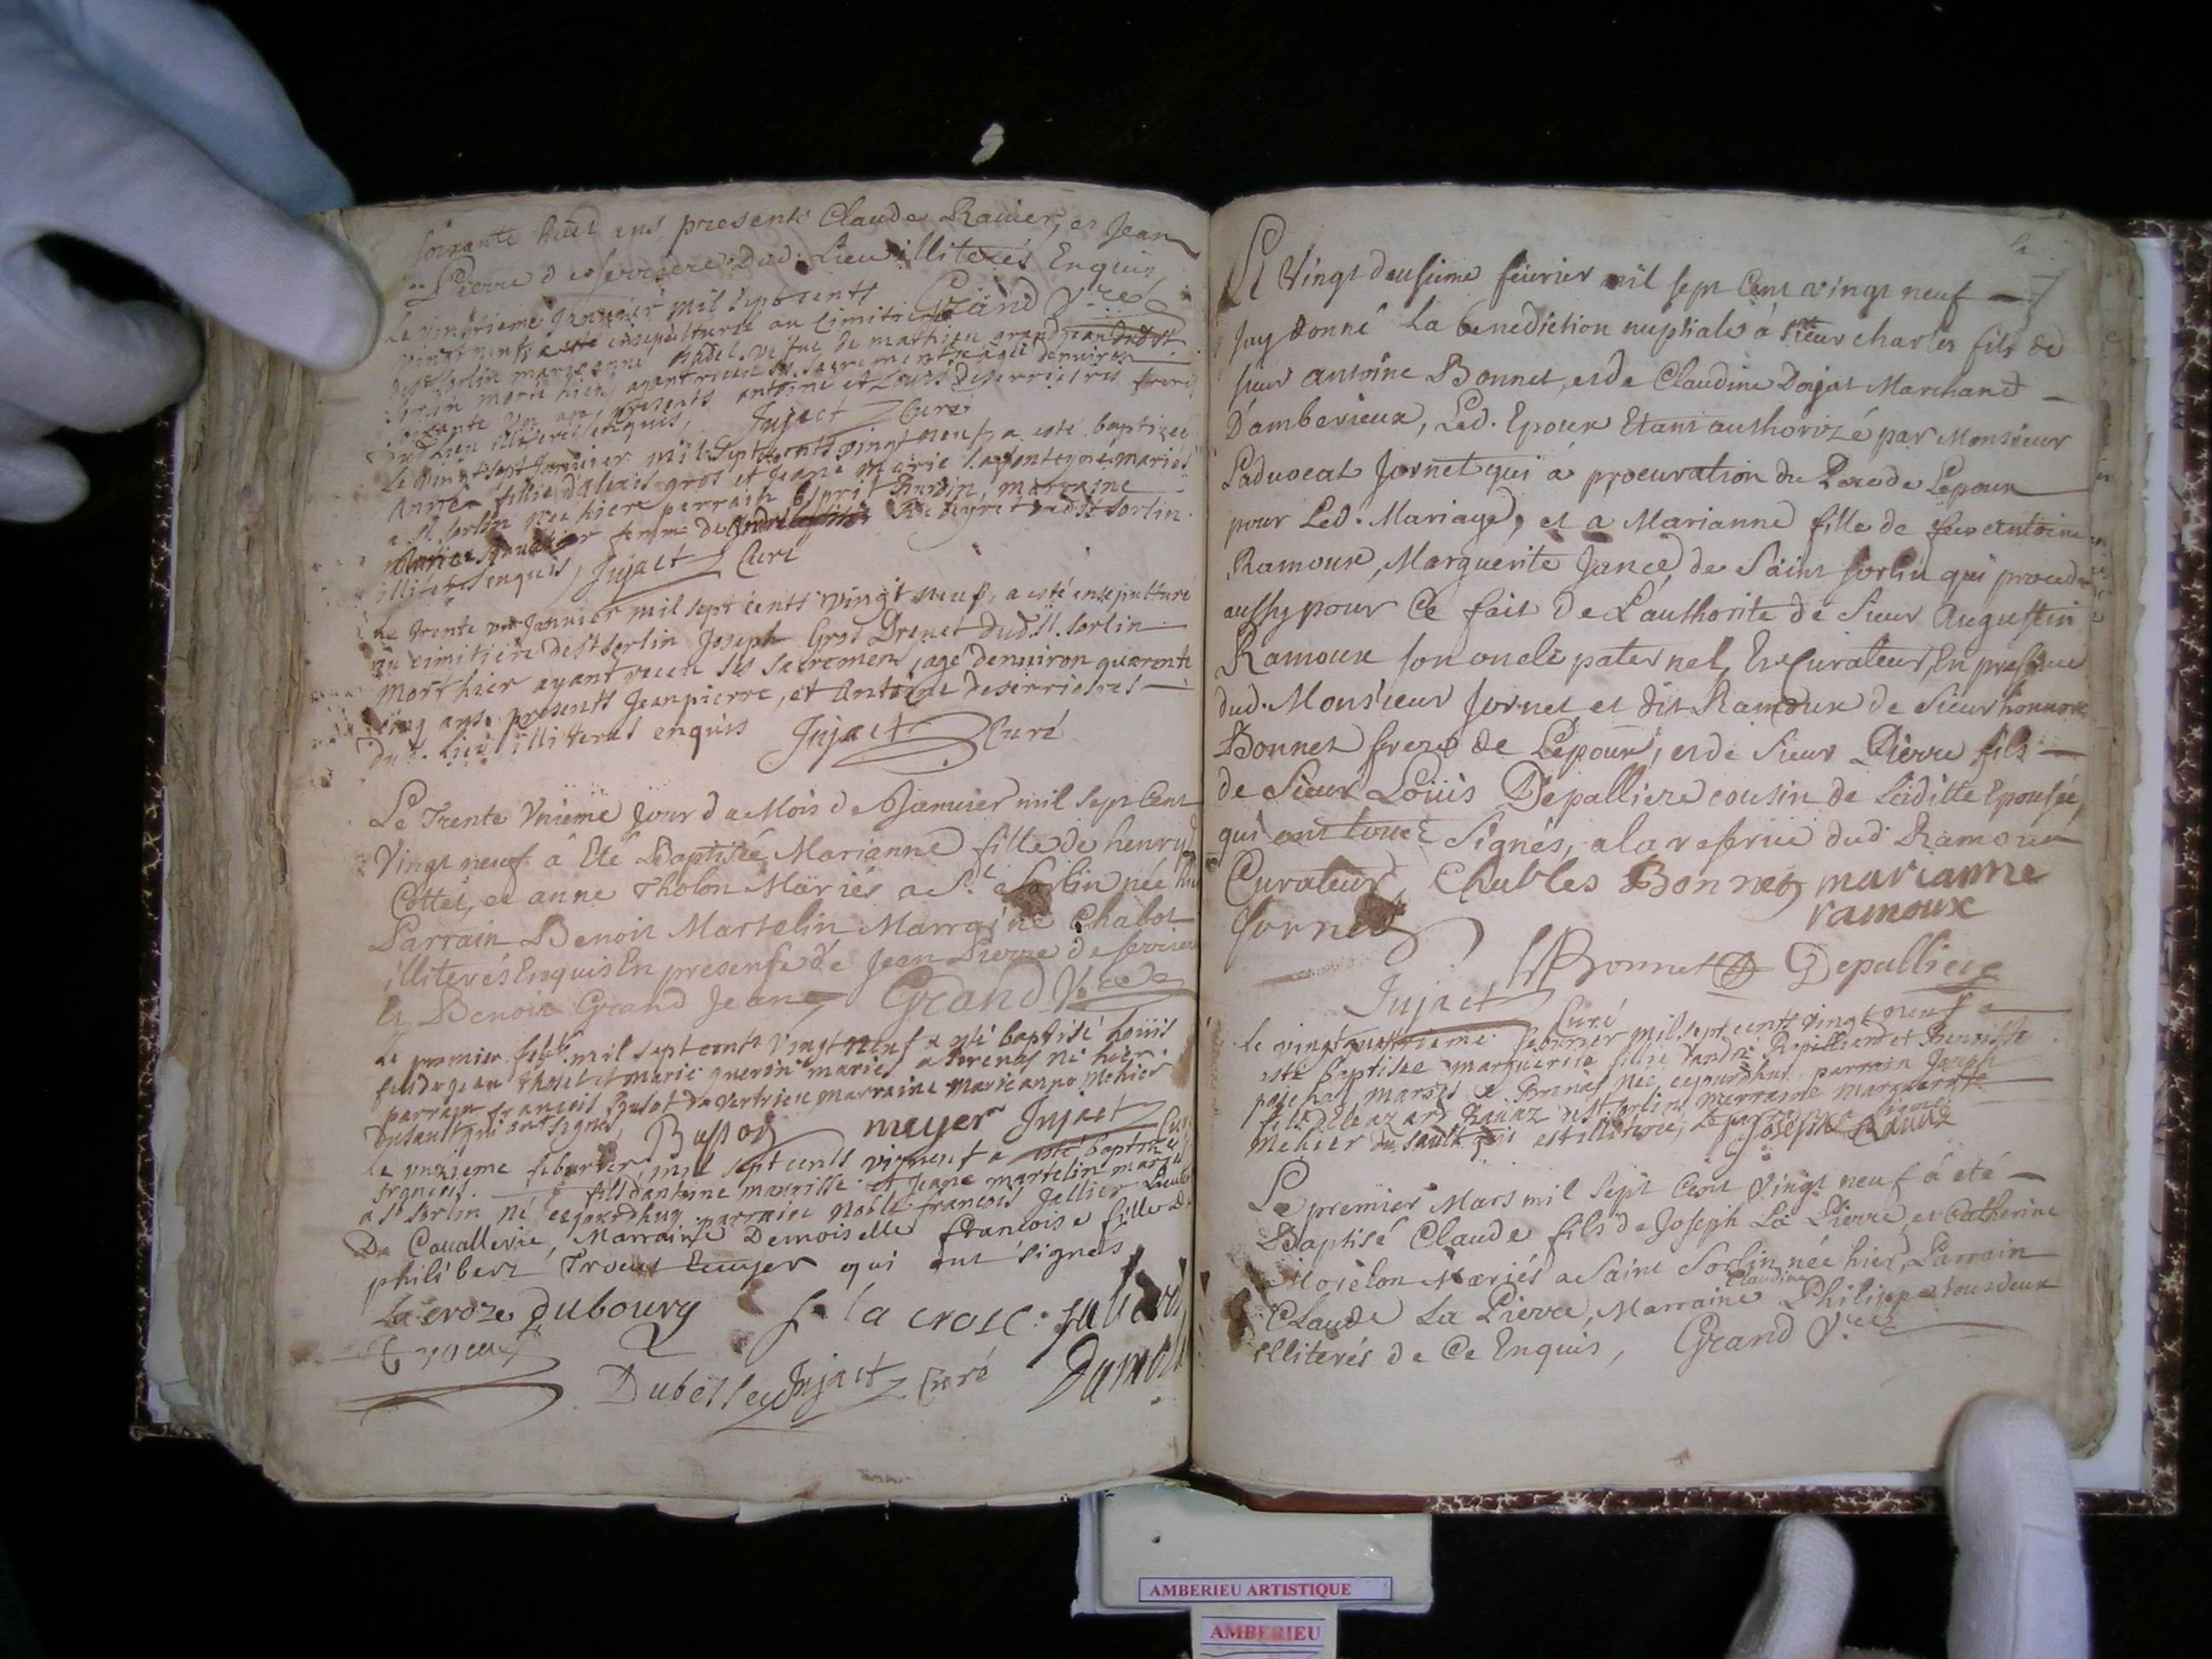 soixante huit ans presents Claude Ravier, et Jean
Pierre deserriere Dud. Lieu illiterés Enquis
Grand V.re
Le vintieme Janvier mil sept cents
vingt neuf, a esté ensepulturée au cimitiere
de St Sorlin marieanne de mathieu
Sorlin morte hier, ayant receu ses sacrements agée denviron
ans, presents antoine et Louis deserrieres freres
Dud. Lieu illiteres enquis, Jujact Curé
Le vint sept Janvier mil sept cents vingt neuf, a esté baptisée
Anne fillie d'alexis gros et Jeane Marie mariés
a St. Sorlin née hier parrain Esprit marraine
femme de dud St Sorlin
illiterés enquis, Jujact Curé
Le trente un Janvier mil sept cents vingt neuf, a esté ensepulturé
au cimitiere de St Sorlin Joseph Gros Drenet dud. St. Sorlin
mort hier ayant receu ses sacremens, agé denviron quarente
cinq ans. presents Jeanpierre, et Antoine deserrieres
dud. lieu illiteres enquis Jujact Curé
Le Trente Unieme Jour du Mois de Janvier mil sept Cent
Vingt neuf a Eté Baptisée Marianne fille de henry
Cottet, et anne Tholon Mariés a St Sorlin née
Parrain Benoit Martelin Marraine Chabot
illiterés Enquis En presense de Jean Pierre deserriere
Et Benoit Grand Jean Grand V.re
Le premier feb. mil sept cents vingt neuf a esté baptisé Louis
fils de Jean Tholet et Marie guerin mariés a Brenas né hier
parrain francois Bussot de Vertrieu marraine marieanne Mehier
Dusault qui ont signé, Bussod meyer Jujact Curé
Le unzieme febvrier mil sept cents vingneuf a esté baptisé
francois. fils d'antoine mavrille et Jeane martelin mariés
a St Sorlin né ceJourdhuy parrain Noble francois Jallier
De Cavallerie, Marraine Demoiselle francoise fille de
philibert Trocut Ecuyer qui ont signés
La croze dubourg la crose
Trocut
Dubessey Jujact Curé
Le Vingt deusieme fevrier mil sept Cent vingt neuf
Jay donné La benediction nuptiale à sieur charles fils de
sieur antoine Bonnet, et de Claudine Dojat Marchand
D'amberieux, Led. Epoux Etant authorizé par Monsieur
Laduocat Jornet qui a procuration du Pere de Lepoux
pour Led. Mariage, et a Marianne fille de feu antoine
Ramoux, Marguerite Jance, de Saint Sorlin qui procede
aussy pour Ce fait de L'authorite de Sieur Augustin
Ramoux son oncle paternel, Et Curateur, En presence
dud. Monsieur Jornet et dit Ramoux de Sieur honnoré
Bonnet frere de Lepoux, et de Sieur Pierre fils
de Sieur Loüis Depalliere cousin de Laditte Epousée,
qui ont tous Signés, a la reserve dud Ramoux
Curateur, Charles Bonnet marianne
Jornet ramoux
Bonnet Depalliere
Jujact Curé
Le vingtquatrieme febvrier mil sept cents vingt neuf a
esté baptisee marguerite fillie d'andré Rapilliard et Benoitte
paschal mariés a Brenas née cejourdhuy parrain Joseph
fils d'Eleazard Ravaz de St. Sorlin, marraine Marguerite
Mehier du sault qui est illiterée, Le parrain a signé
Joseph Ravaz
Le premier Mars mil Sept Cent Vingt neuf á eté
Baptisé Claude fils de Joseph La Pierre, et Catherine
Morelon Mariés a Saint Sorlin née hier, Parrain
Claude La Pierre, Marraine Claudine Philippe tous deux
illiterés de Ce Enquis, Grand V.re
AMBERIEU ARTISTIQUE
AMBERIEU